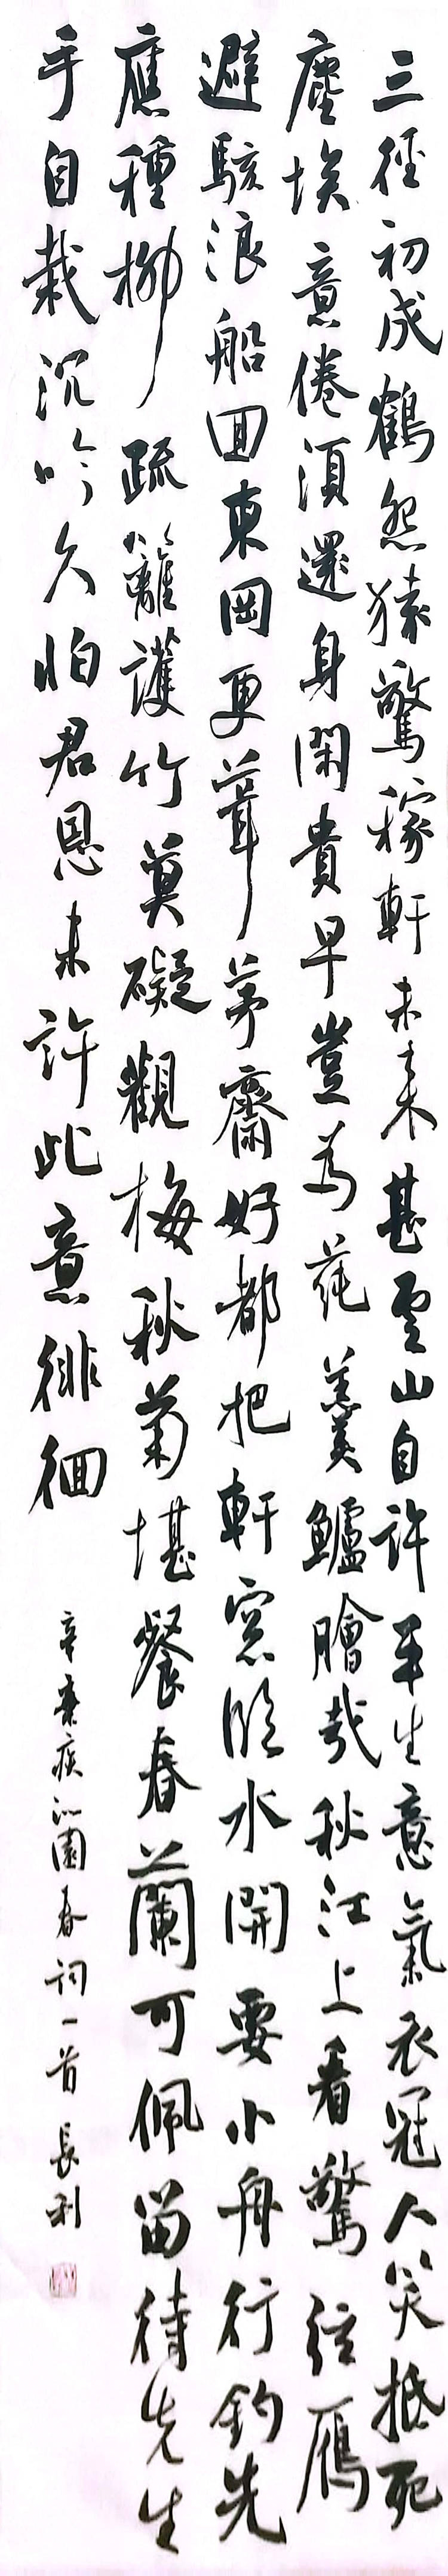 三徑初成鶴怨猿驚稼軒未來甚雲山自許平生意氣衣冠人笑抵死
塵埃意倦須還身閑貴早豈為蒓羹鱸膾哉秋江上看驚弦雁
避駭浪船回東岡更葺茅齋好都把軒窓臨水開要小舟行釣先
應種柳疏籬護竹莫礙觀梅秋菊堪餐春蘭可佩留待先生
手自栽沉吟久怕君恩未許此意徘徊
辛棄疾沁園春詞一首 長利